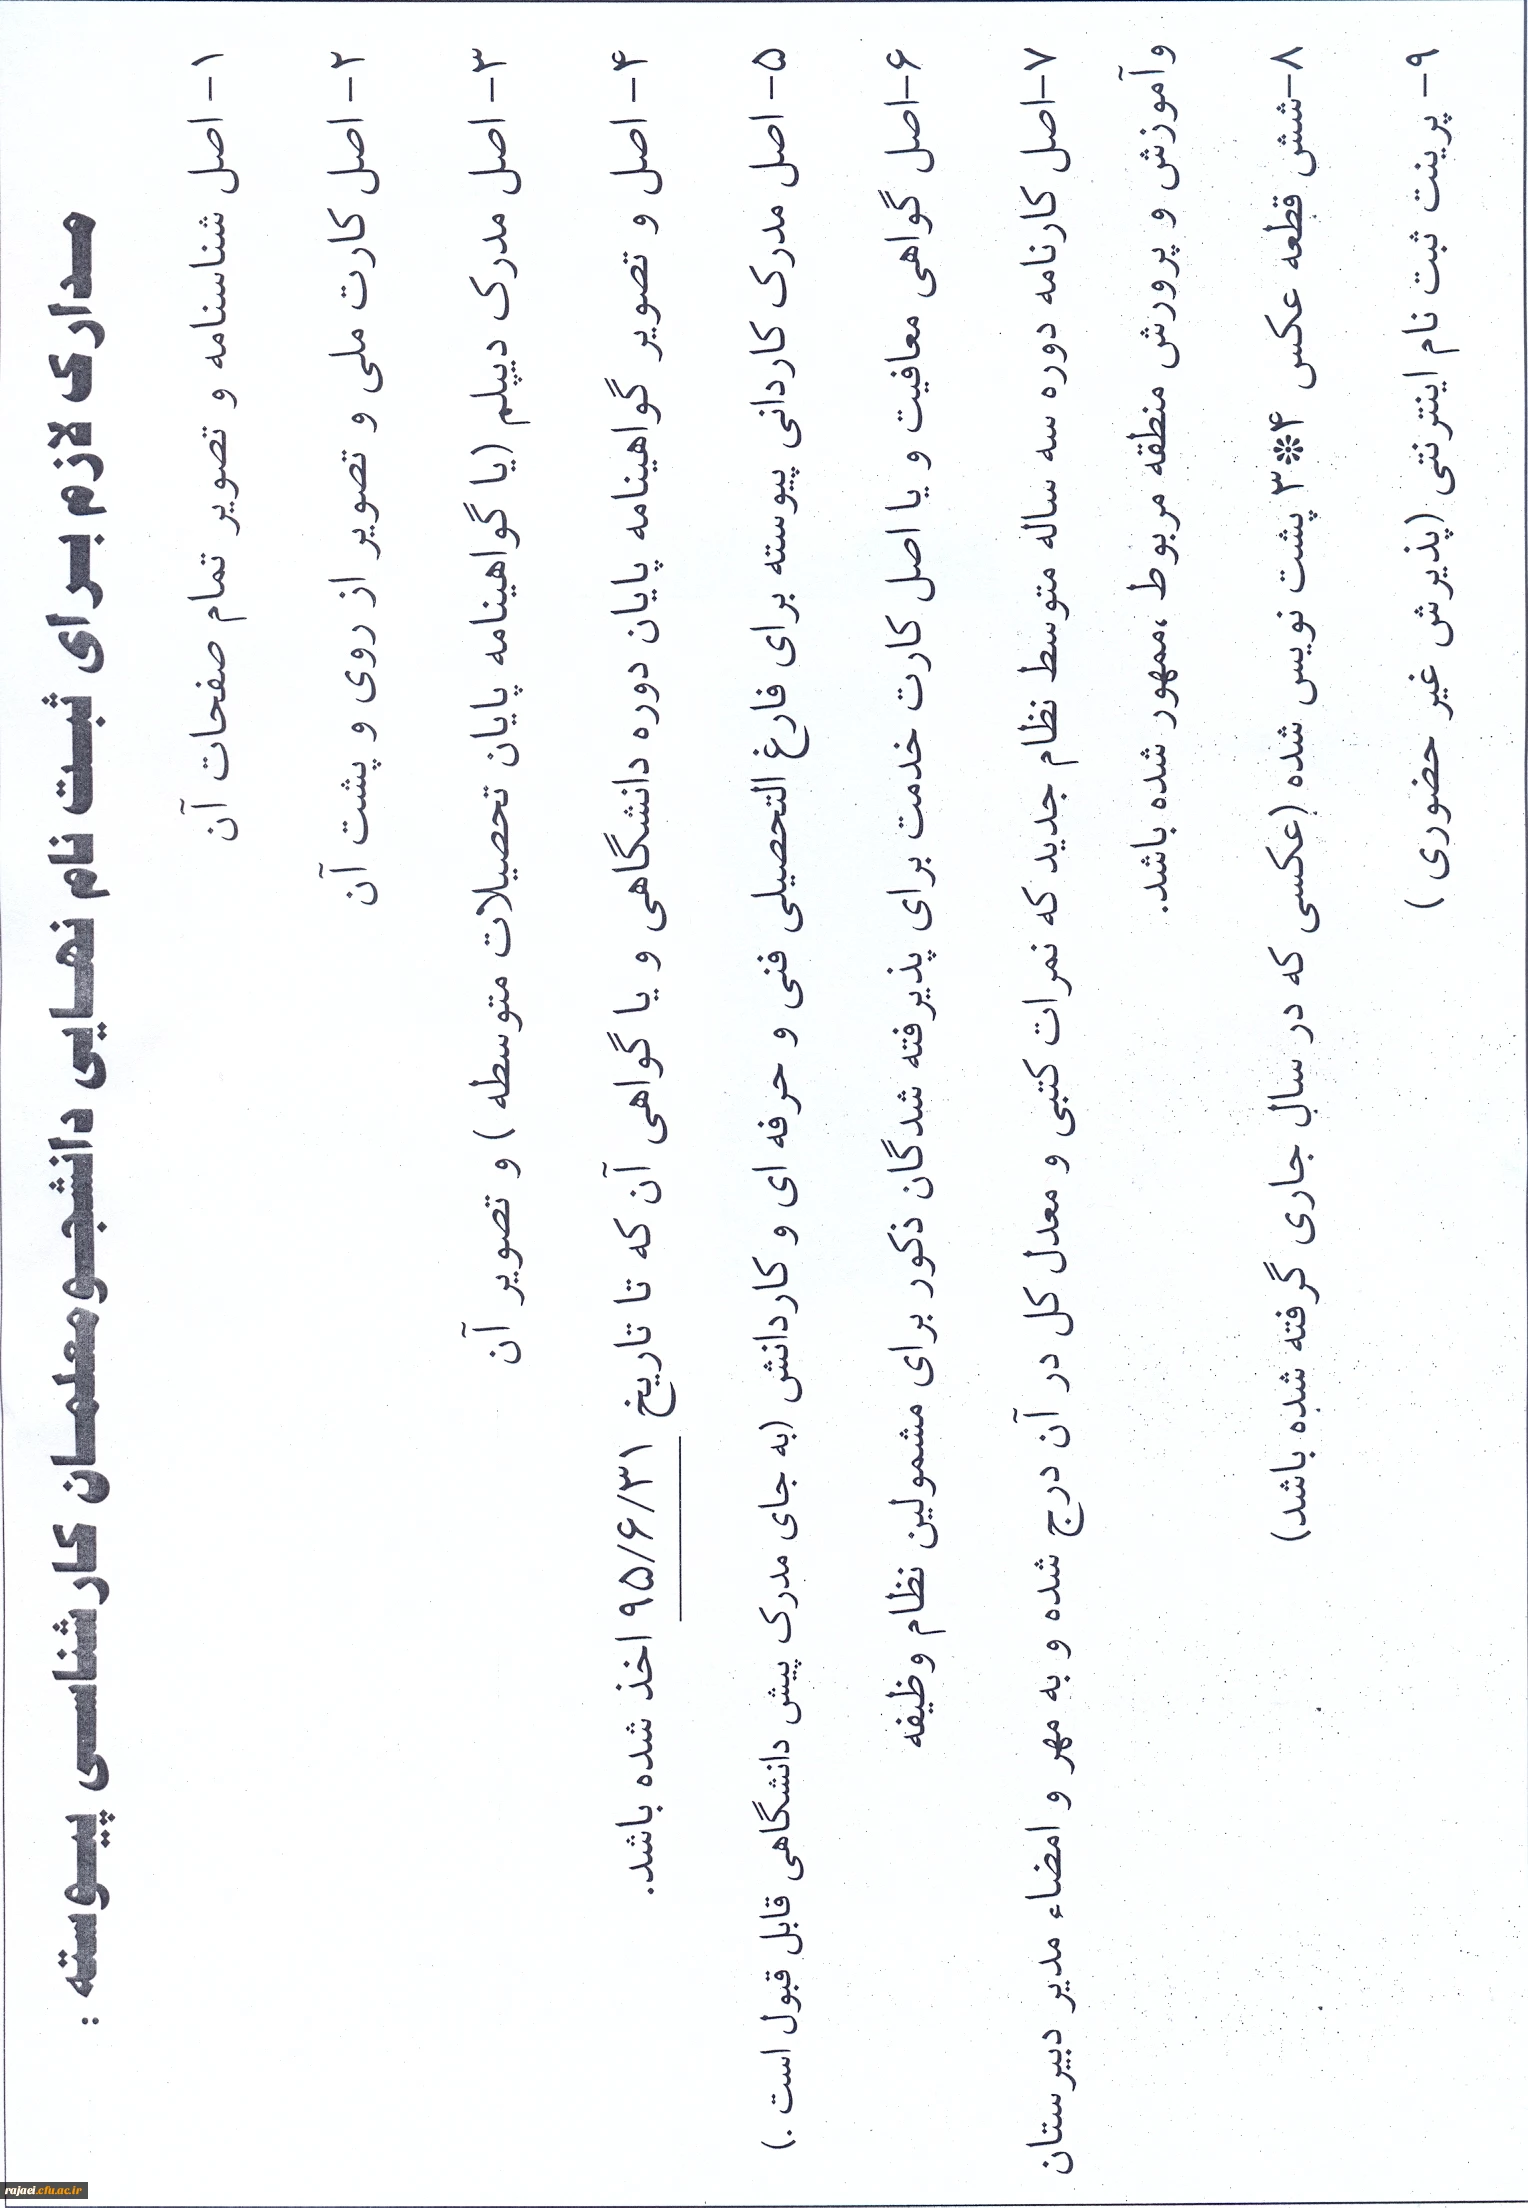 مدارک لازم برای ثبت نام نهایی دانشجومعلمان کارشناسی پیوسته :
۱- اصل شناسنامه و تصویر تمام صفحات آن
۲- اصل کارت ملی و تصویر از روی و پشت آن
۳- اصل مدرک دیپلم (یا گواهینامه پایان تحصیلات متوسطه ) و تصویر آن
۴- اصل و تصویر گواهینامه پایان دوره دانشگاهی و یا گواهی آن که تا تاریخ ۹۵/۶/۳۱ اخذ شده باشد.
۵- اصل مدرک کاردانی پیوسته برای فارغ التحصیلی فنی و حرفه ای و کاردانش (به جای مدرک پیش دانشگاهی قابل قبول است .)
۶-اصل گواهی معافیت و یا اصل کارت خدمت برای پذیرفته شدگان ذکور برای مشمولین نظام وظیفه
۷-اصل کارنامه دوره سه ساله متوسط نظام جدید که نمرات کتبی و معدل کل در آن درج شده و به مهر و امضاء مدیر دبیرستان
وآموزش و پرورش منطقه مربوط ،ممهور شده باشد.
۸-شش قطعه عکس ۴*۳ پشت نویس شده (عکسی که در سال جاری گرفته شده باشد)
۹- پرینت ثبت نام اینترنتی (پذیرش غیر حضوری )
rajaei.cfu.ac.ir